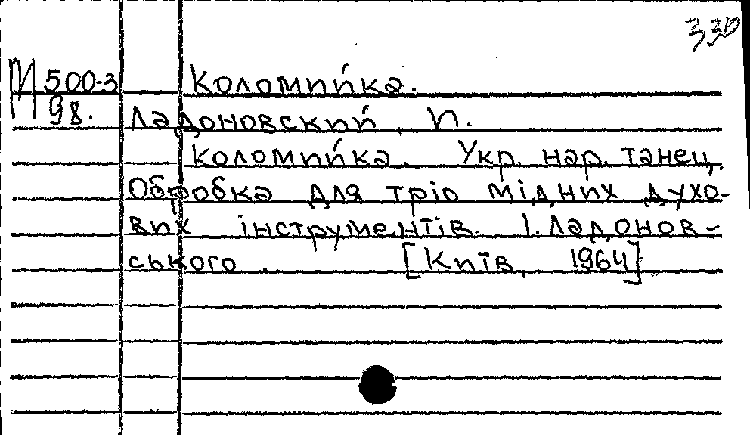 330
М 500-3 Коломийка.
98.
Ладоновский, И.
Коломийка. Укр. нар. танец.
Обробка для тріо мідних духо-
вих інструментів І. Ладонов-
ського. [Київ, 1964]